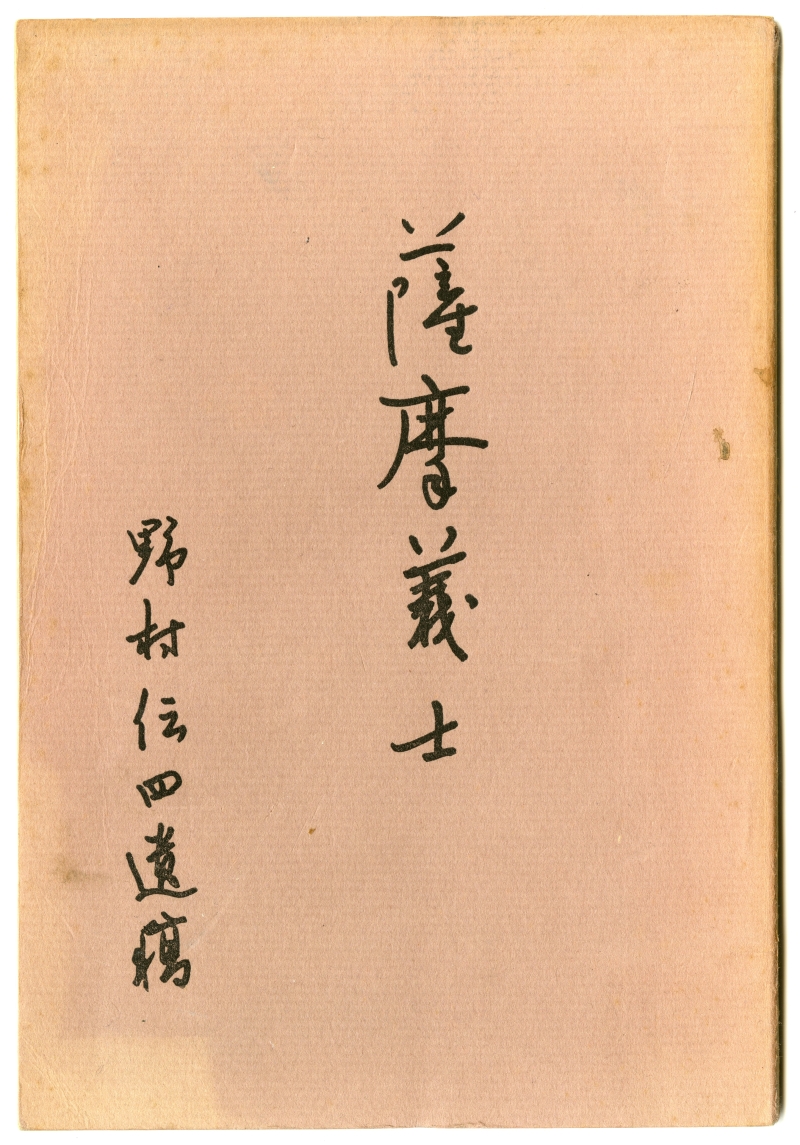 薩摩義士
野村伝四遺稿